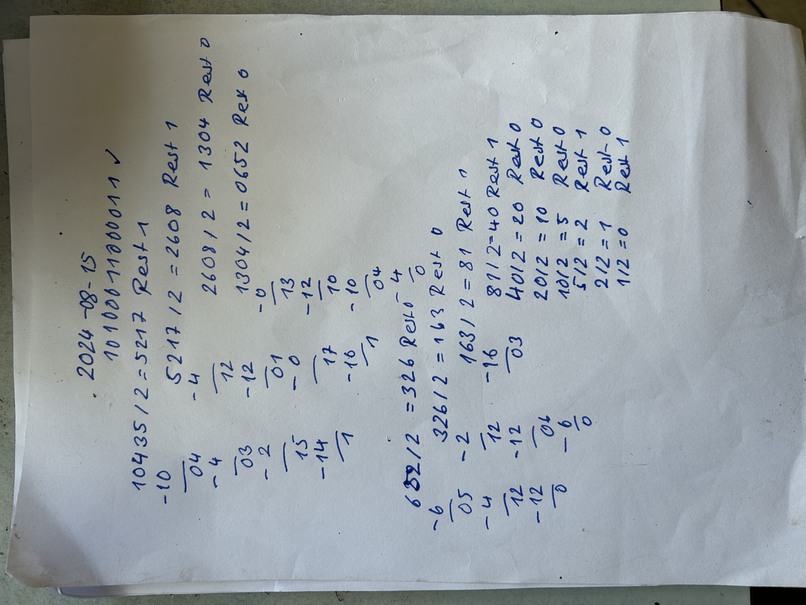 2024-08-15
10100011000011 ✓
10435/2=5217 Rest 1
-10 5217/2=2608 Rest 1
04 -4
-4 12 2608/2=1304 Rest 0
03 -12 1304/2=0652 Rest 0
-2 01 -0
15 -0 13
-14 17 -12
1 -16 10
1 -10
04
-4
652/2=326 Rest 0 0
-6 326/2=163 Rest 0
05 -2 163/2=81 Rest 1
-4 12 -16 81/2=40 Rest 1
12 -12 03 40/2=20 Rest 0
-12 06 20/2=10 Rest 0
0 -6 10/2=5 Rest 0
0 5/2=2 Rest 1
2/2=1 Rest 0
1/2=0 Rest 1